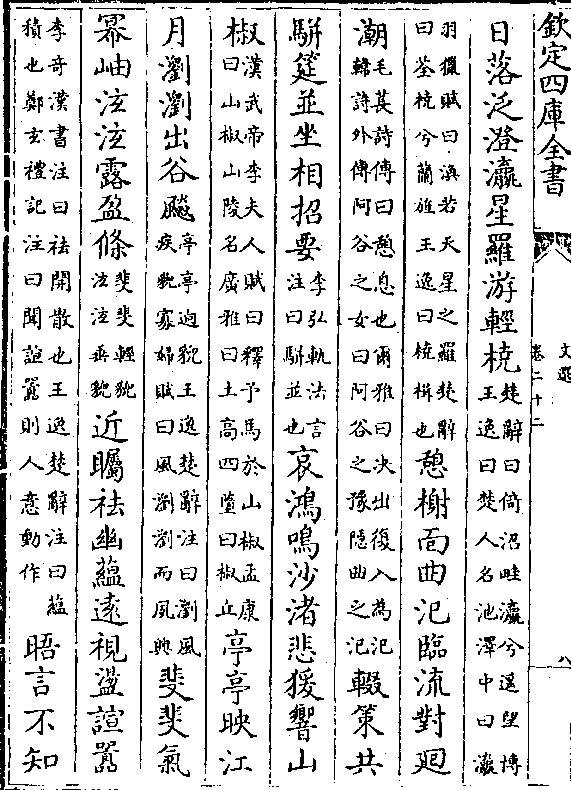 欽定四庫全書
文選
卷二十二
八
日落泛澄瀛星羅游輕橈
楚辭曰倚沼畦瀛兮遥望博
王逸曰楚人名池澤中曰瀛
羽獵賦曰渙若天星之羅楚辭
曰荃橈兮蘭旌王逸曰橈楫也
憩榭面曲汜臨流對廻
潮
毛萇詩傳曰憩息也爾雅曰决出復入為汜
韓詩外傳阿谷之女曰阿谷之豫隱曲之汜
輟策共
駢筵並坐相招要
李弘軌法言
注曰駢並也
哀鴻鳴沙渚悲猨響山
椒
漢武帝李夫人賦曰釋予馬於山椒孟康
曰山椒山陵名廣雅曰土高四墮曰椒丘
亭亭映江
月瀏瀏出谷飈
亭亭逈貌王逸楚辭注曰瀏風
疾貌寡婦賦曰風瀏瀏而風興
斐斐氣
冪岫泫泫露盈條
斐斐輕貌
泫泫垂貌
近矚祛幽藴遠視盪諠囂
李奇漢書注曰祛開散也王逸楚辭注曰藴
積也鄭玄禮記注曰聞諠囂則人意動作
晤言不知